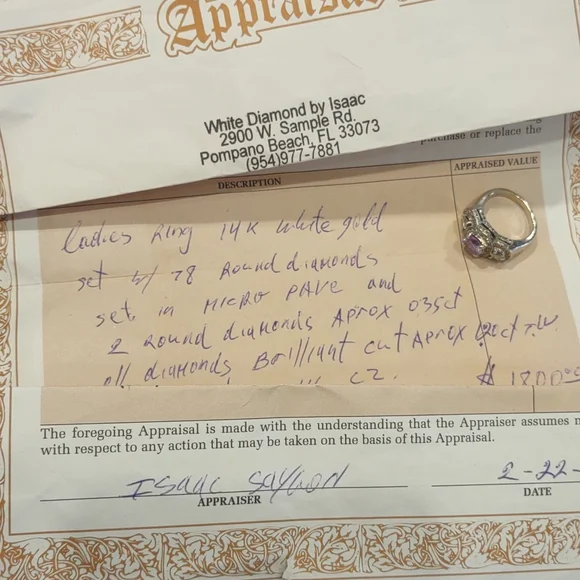 Appraisal
White Diamond by Isaac
2900 W. Sample Rd.
Pompano Beach, FL 33073
(954)977-7881
purchase or replace the
DESCRIPTION
APPRAISED VALUE
ladies Ring 14K white gold
set w/ 78 Round diamonds
set in MICRO PAVE and
2 Round diamonds Aprox 035ct
all diamonds Brilliant cut Aprox
CZ. $ 1800.00
The foregoing Appraisal is made with the understanding that the Appraiser assumes
with respect to any action that may be taken on the basis of this Appraisal.
Isaac
2-22-
APPRAISER
DATE